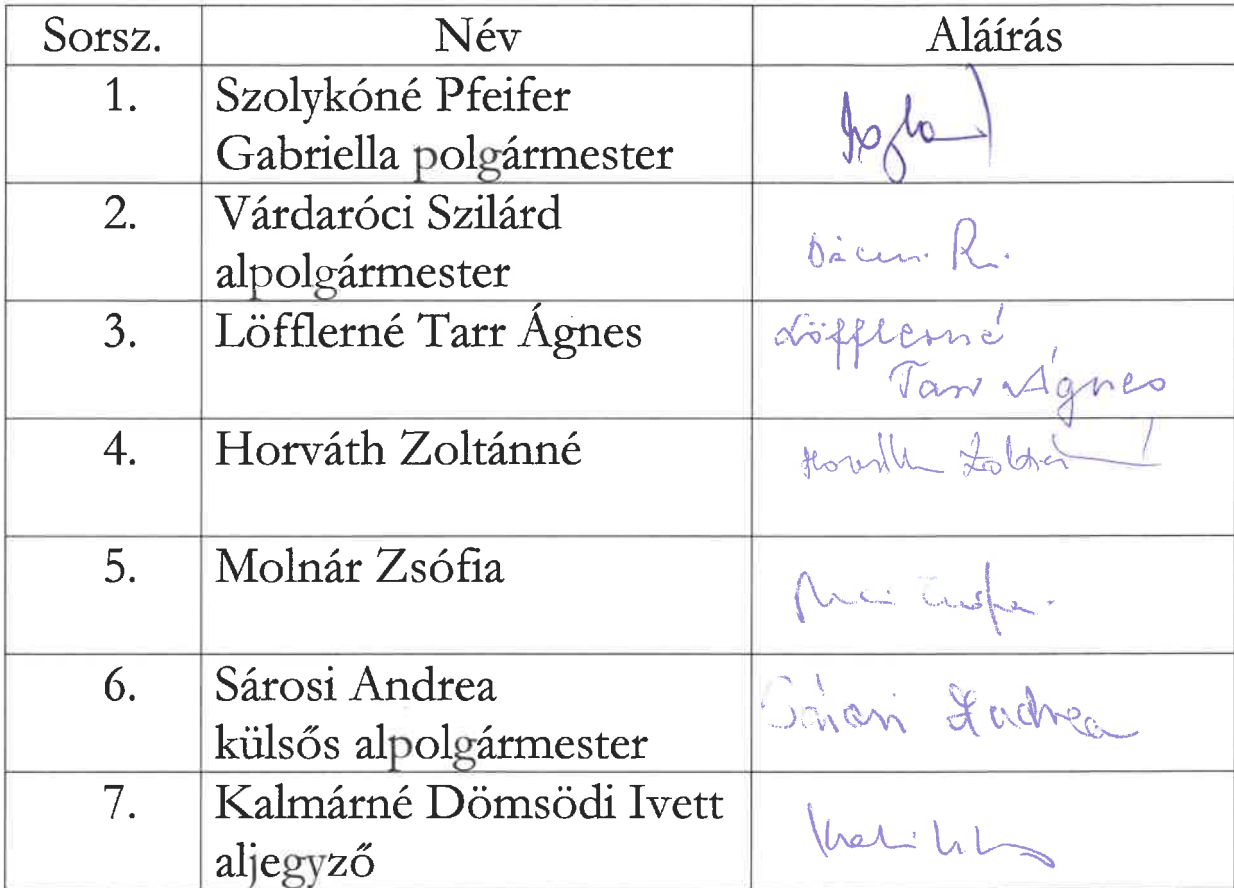 Sorsz. Név Aláírás
1. Szolykóné Pfeifer
Gabriella polgármester
2. Várdaróci Szilárd
alpolgármester
3. Löfflerné Tarr Ágnes Löfflerné
Tarr Ágnes
4. Horváth Zoltánné Horváth Zoltán
5. Molnár Zsófia
6. Sárosi Andrea Sárosi Andrea
külsős alpolgármester
7. Kalmárné Dömsödi Ivett
aljegyző